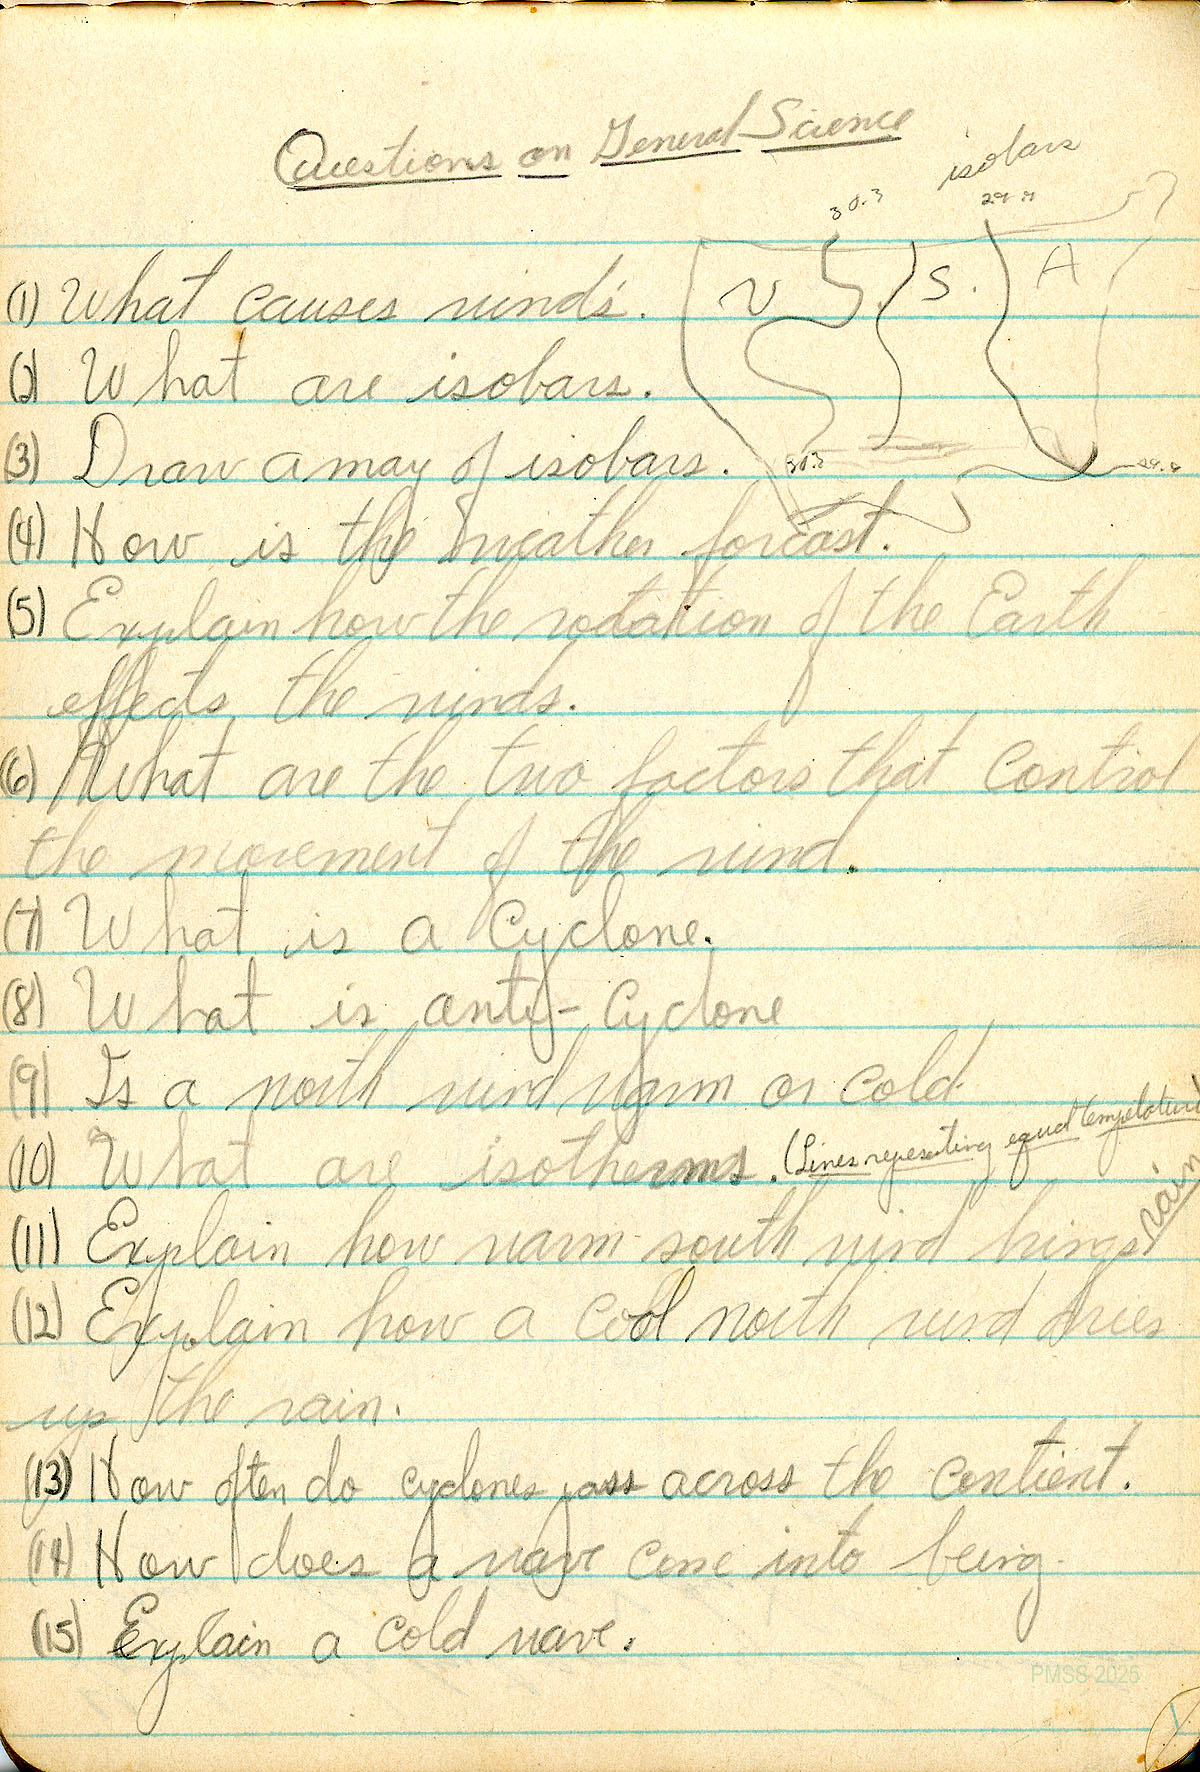 Questions on General Science
isobars
30.3
29.9
U S. A
(1) What causes winds.
(2) What are isobars.
(3) Draw a map of isobars.
30.3
(4) How is the weather forcast.
(5) Explain how the rotation of the Earth
effects the winds.
(6) What are the two factors that control
the movement of the wind.
(7) What is a Cyclone.
(8) What is anti-Cyclone
(9) Is a north wind warm or cold
(10) What are isotherms. (Lines representing equal temperature)
(11) Explain how warm south wind brings rain
(12) Explain how a cool north wind dries
up the rain.
(13) How often do cyclones pass across the contient.
(14) How does a wave come into being.
(15) Explain a cold wave.
PMSS 2025